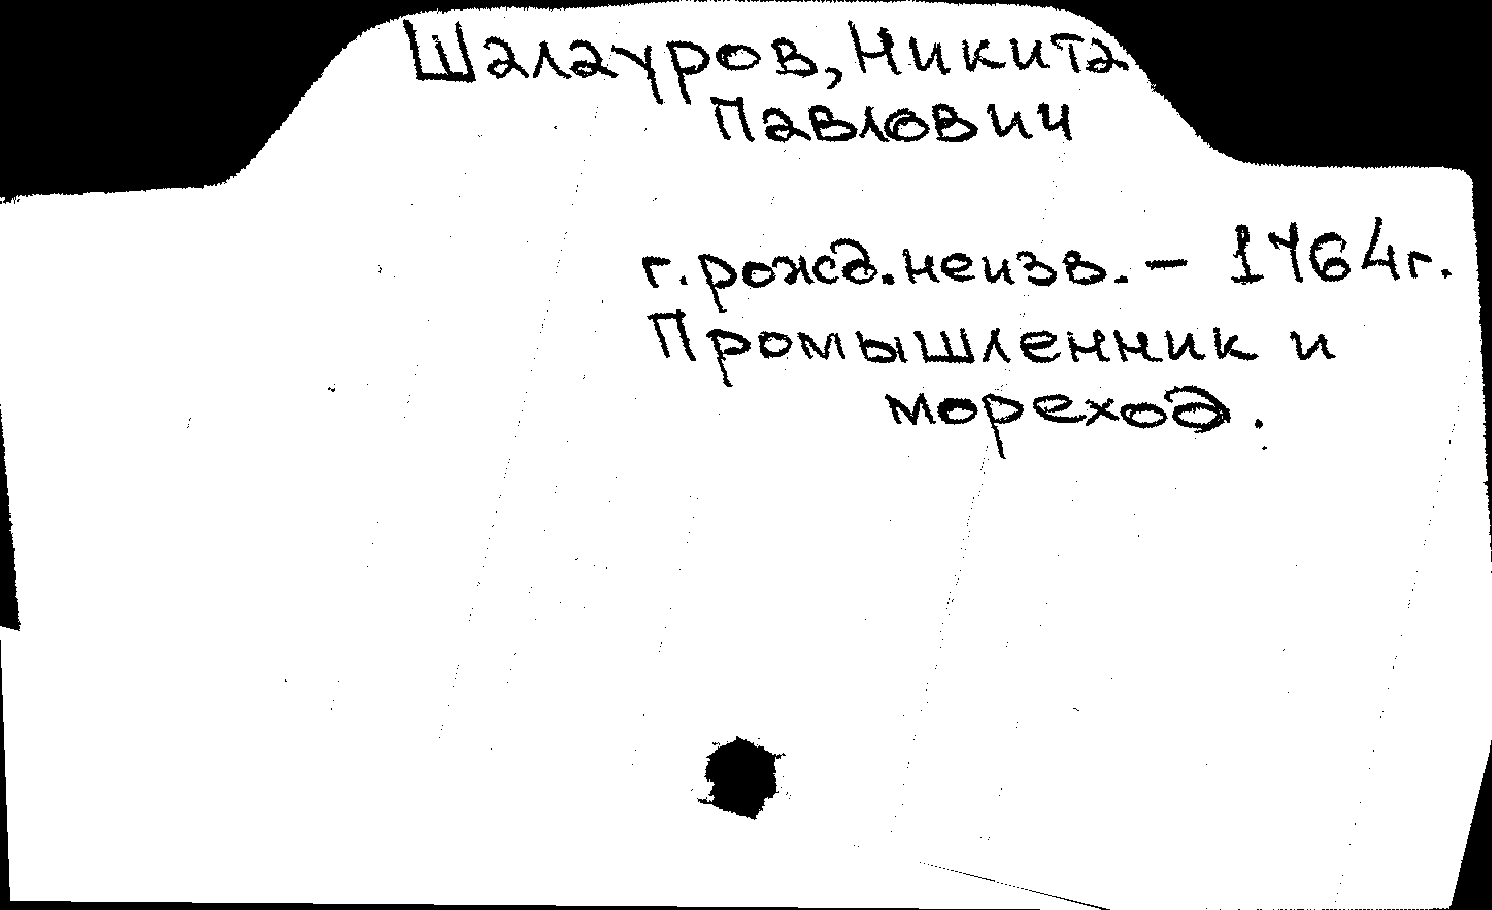 Шалауров, Никита
Павлович
г. рожд. неизв. – 1764 г.
Промышленник и
мореход.